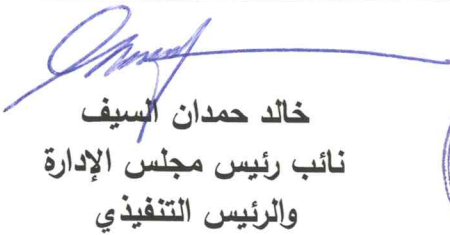 خالد حمدان السيف
نائب رئيس مجلس الإدارة
والرئيس التنفيذي